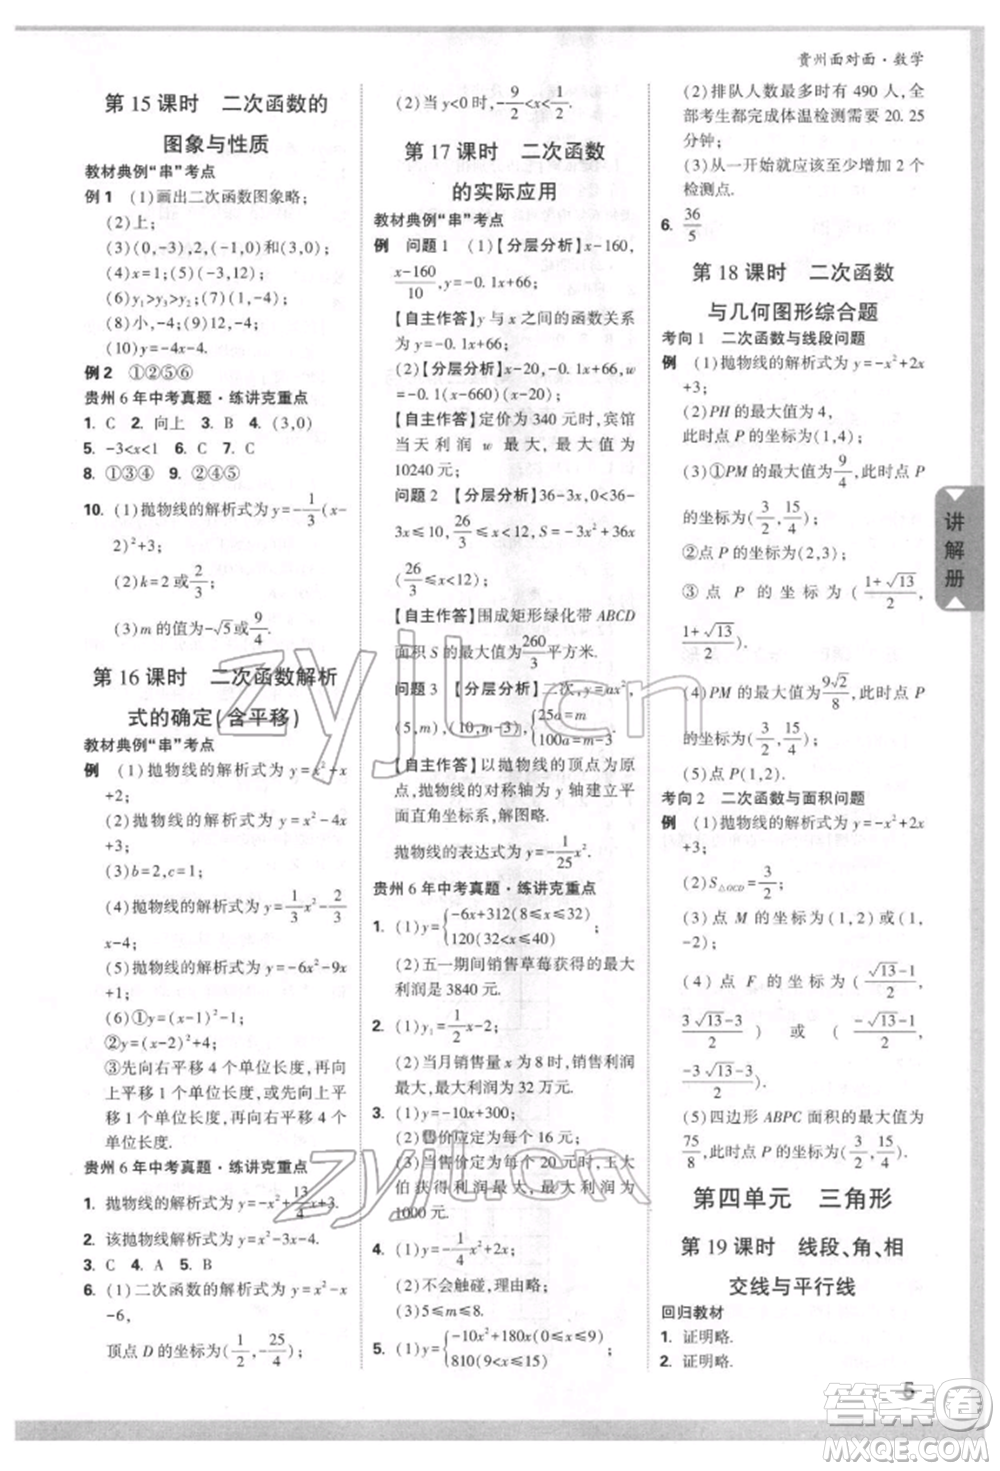 贵州面对面·数学
第 15 课时 二次函数的
图象与性质
教材典例“串”考点
例 1 (1)画出二次函数图象略;
(2)上;
(3)(0,-3),(-2,-3);
(4)x=1;(5)(-3,12);
(6)y₁>y₃>y₂;(7)(1,-4);
(8)小,-4;(9)12,-4;
(10)y=-4-4.
例 2 ①②⑤⑥
贵州 6 年中考真题·练讲克重点
1. C 2. 向上 3. B 4. (3,0)
5. -3<x<1 6. C 7. C
8. ①③④ 9. ①②④⑤
10. (1)抛物线的解析式为 y=-1/3(x-
2)²+3;
(2)k=2 或 2/3;
(3)m 的值为-√5或 9/4.
第 16 课时 二次函数解析
式的确定(含平移)
教材典例“串”考点
例 (1)抛物线的解析式为 y=x²+x
+2;
(2)抛物线的解析式为 y=x²-4x
+3;
(3)b=2,c=1;
(4)抛物线的解析式为 y=-1/3x²-2/3
x-4;
(5)抛物线的解析式为 y=-6x²-x
+1;
(6)①y=(x-2)²-1;
②y=(x-2)²-4;
③先向右平移 4 个单位长度,再向
上平移 1 个单位长度,或先向上平
移 1 个单位长度,再向右平移 4 个
单位长度.
贵州 6 年中考真题·练讲克重点
1. 抛物线的解析式为 y=-x²+13/4x+3.
2. 该抛物线的解析式为 y=x²-2x-3.
3. C 4. A 5. B
6. (1)二次函数的解析式为 y=x²-x
-6,
顶点 D 的坐标为(1/2,-25/4);
(2)当 y<0 时,-9/2<x<1/2.
第 17 课时 二次函数
的实际应用
教材典例“串”考点
例 问题 1 (1)【分层分析】x-160,
x-160/10,y=-0. 1x+66;
【自主作答】y 与 x 之间的函数关系
为 y=-0. 1x+66;
(2)【分层分析】x-20,-0. 1x+66,w
=-0. 1(x-660)(x-20);
【自主作答】定价为 340 元时,宾馆
当天利润 w 最大,最大利润为
10240 元;
问题 2 【分层分析】36-3x,0<36-
3x≤10,26/3≤x<12,S=-3x²+36x
(26/3≤x<12);
【自主作答】围成矩形绿化带 ABCD
面积 S 的最大值为260/3平方米.
问题 3 【分层分析】二次,y=ax²,
(5,m),(10,m-3),{25a=m
100a=m-3
【自主作答】以抛物线的顶点为原
点,抛物线的对称轴为 y 轴建立平
面直角坐标系,解图略.
抛物线的表达式为 y=-1/25x².
贵州 6 年中考真题·练讲克重点
1. (1)y={-6x+312(8≤x≤32)
120(32<x≤40)
(2)五一期间销售草莓获得的最大
利润为 3840 元.
2. (1)y₁=1/2x-2;
(2)当月销售量 x 为 8 时,销售利润
最大,最大利润为 32 万元.
3. (1)y=-10x+300;
(2)价应定为每个 16 元;
(3)当售价定为每个 15 元时,王大
伯获得利润最大,最大利润为
1000 元.
4. (1)y=-1/4x²+4;
(2)不会触碰,理由略;
(3)5≤m≤8.
5. (1)y={-10x²+180x(0≤x≤9)
810(9<x≤15)
(2)排队人数最多时有 490 人,全
部考生都完成体温检测需要 20. 25
分钟;
(3)从一开始就应该至少增加 2 个
检测点.
6. 36/5
第 18 课时 二次函数
与几何图形综合题
考向 1 二次函数与线段问题
例 (1)抛物线的解析式为 y=-x²+2x
+3;
(2)PH 的最大值为 4,
此时点 P 的坐标为(1,4);
(3)①PM 的最大值为9/4,此时点 P
的坐标为(3/2,15/4);
②点 P 的坐标为(2,3);
③点 P 的坐标为(1+√13/2,
1+√13/2).
(4)PM 的最大值为9√2/8,
此时点 P 的坐标为(3/2,15/4);
(5)点 P(1,2).
考向 2 二次函数与面积问题
例 (1)抛物线的解析式为 y=-x²+2x
+3;
(2)S△OCD=3/2;
(3)点 M 的坐标为(1,2)或(1,
-2);
(4)点 F 的坐标为(√13-1/2,
3√13-3/2)或(-√13-1/2,
-3√13-3/2);
(5)四边形 ABPC 面积的最大值为
75/8,此时点 P 的坐标为(3/2,15/4).
第四单元 三角形
第 19 课时 线段、角、相
交线与平行线
回归教材
1. 证明略.
2. 证明略.
讲解册
5
zyjl.cn
zyjl.cn
答案圈
MXQE.COM